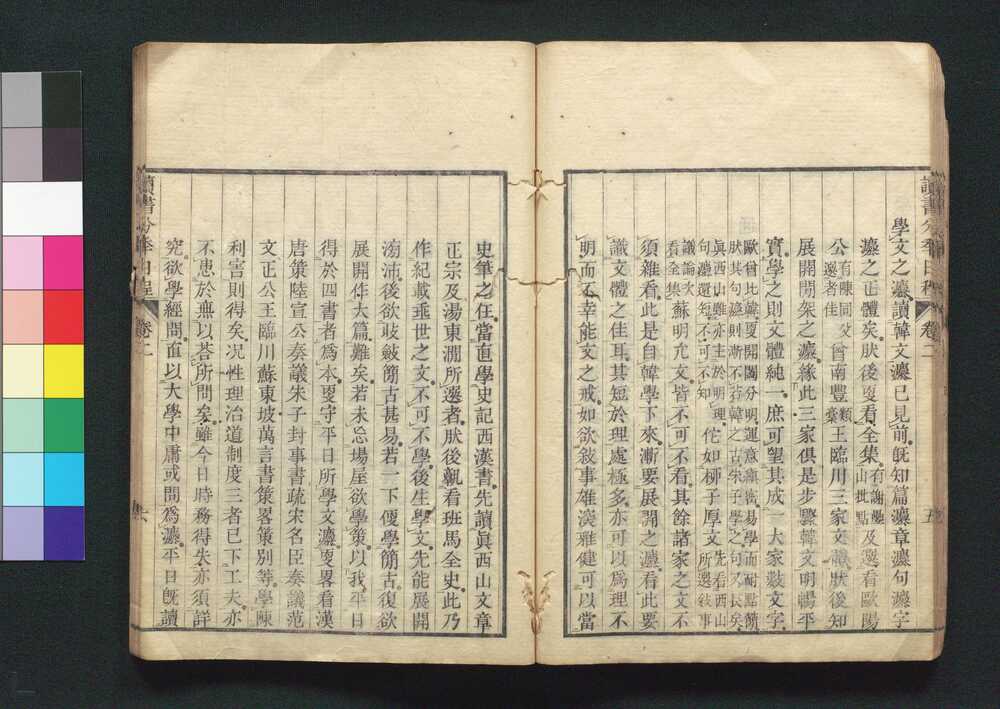 讀書分年日程
卷二
五
學文之灋讀韓文灋已見前旣知篇灋章灋句灋字
灋之正體矣肰後叓看全集有謝疊山批點及選看歐陽
公有陳同父選者佳曾南豐類稾王臨川三家文肰後知
展開閒架之灋緣此三家俱是步驟韓文明暢平
實學之則文體純一庶可望其成一大家數文字
歐曾比韓叓開闊分明運意縝密易學而耐點簡
肰其句灋則漸不若韓之古朱子學之句又長矣
眞西山雖亦主於明理
句灋還短不可不知
佗如栁子厚文先看西山所選敘事議論次看全集
蘇明允文皆不可不看其餘諸家之文不
須雜看此是自韓學下來漸要展開之灋看此要
識文體之佳耳其短於理處極多亦可以爲理不
明而不幸能文之戒如欲敘事雄深雅健可以當
史筆之任當直學史記西漢書先讀眞西山文章
正宗及湯東澗所選者肰後㽎看班馬全史此乃
作紀載垂世之文不可不學後生學文先能展開
滂沛後欲收斂簡古甚易若一下便學簡古復欲
展開作大篇難矣若未忘場屋欲學策以我平日
得於四書者爲本叓守平日所學文灋叓畧看漢
唐策陸宣公奏議朱子封事書疏宋名臣奏議范
文正公王臨川蘇東坡萬言書策畧策別等學陳
利害則得矣况性理治道制度三者已下工夫亦
不患於無以荅所問矣雖今日時務得失亦須詳
究欲學經問直以大學中庸或問爲灋平日旣讀
讀書分年日程
卷二
六